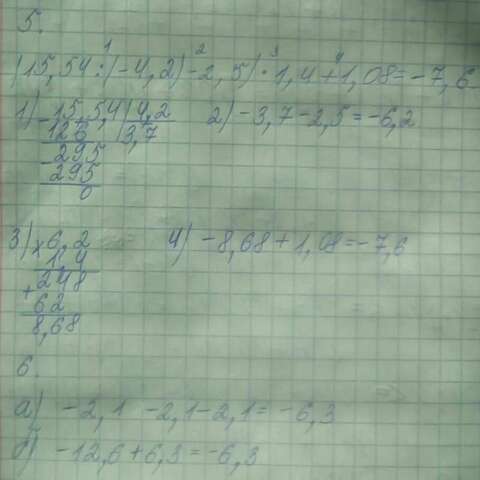 5.
(15,54:(-4,2)-2,5)·1,4+1,08=-7,6
1) 15,54 | 4,2 2) -3,7-2,5=-6,2
126 | 3,7
295
295
0
3) ×6,2 4) -8,68+1,08=-7,6
1,4
+248
62
8,68
6.
а) -2,1 -2,1-2,1= -6,3
б) -12,6+6,3=-6,3